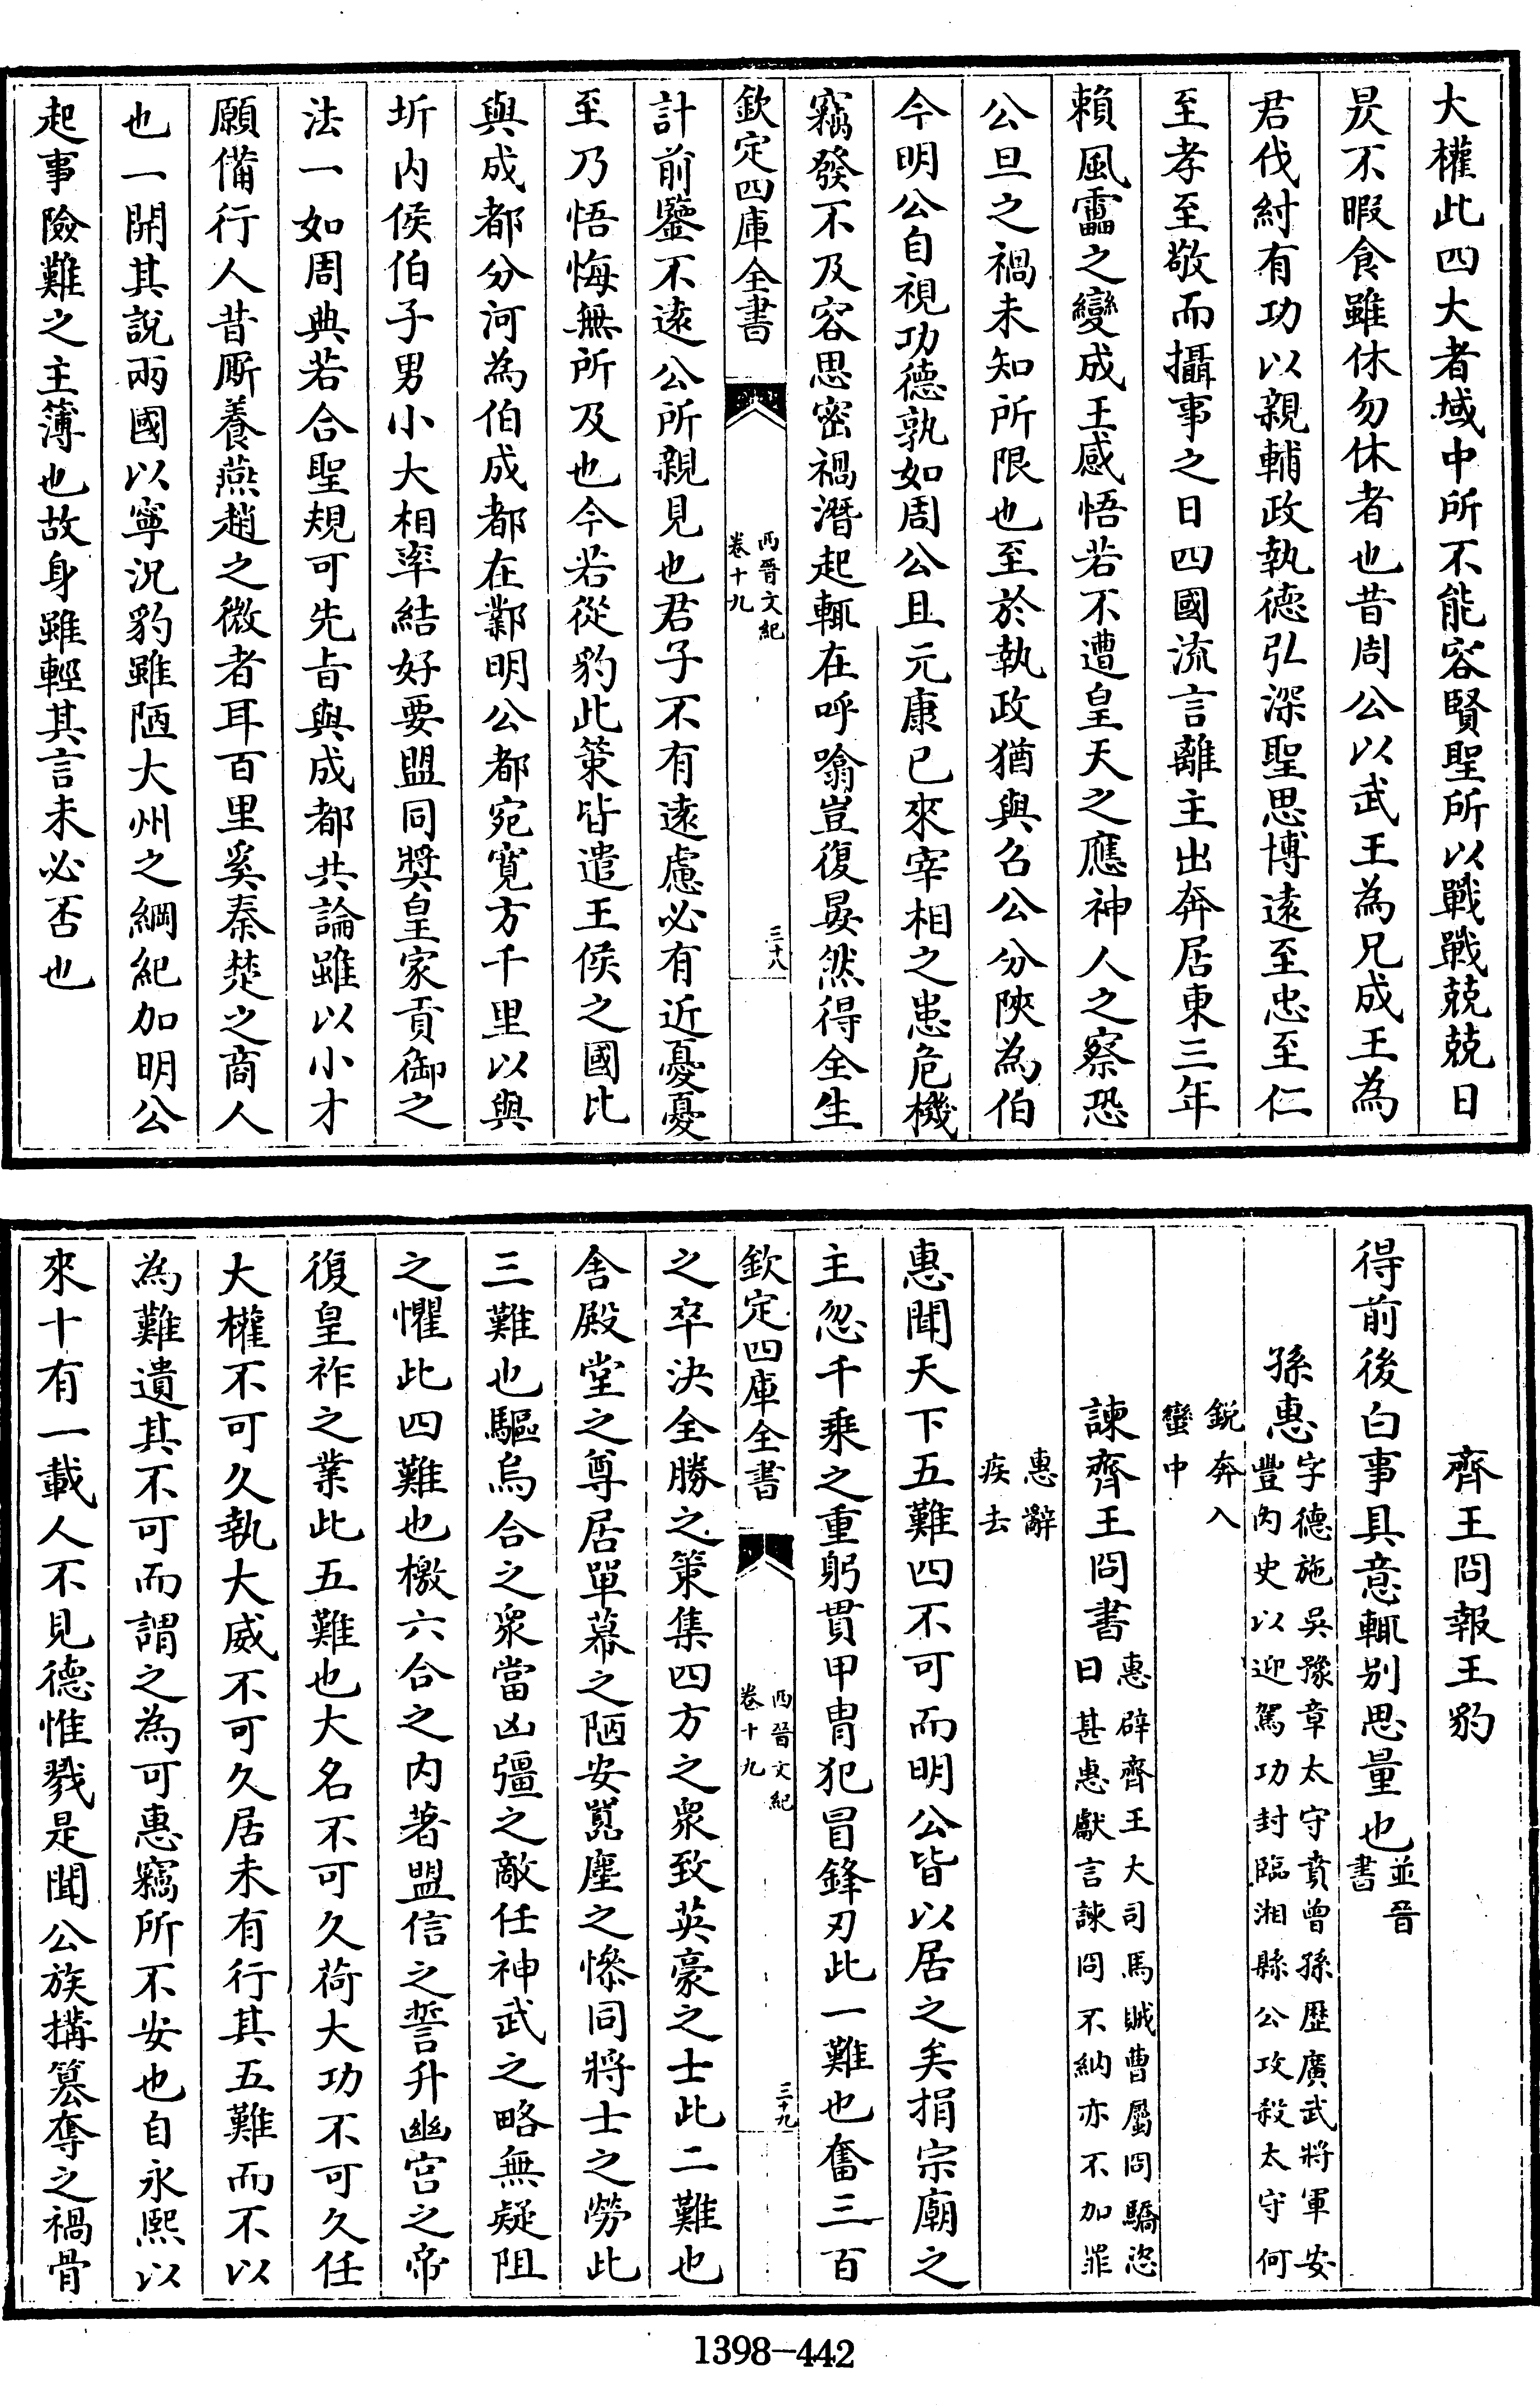 大權此四大者域中所不能容賢聖所以戰戰兢兢日
昃不暇食雖休勿休者也昔周公以武王為兄成王為
君伐紂有功以親輔政執德弘深聖思博遠至忠至仁
至孝至敬而攝事之日四國流言離主出奔居東三年
賴風靁之變成王感悟若不遭皇天之應神人之察恐
公旦之禍未知所限也至於執政猶與召公分陝為伯
今明公自視功德孰如周公且元康已來宰相之患危機
竊發不及容思密禍潛起輒在呼噏豈復晏然得全生
欽定四庫全書
西晉文紀
卷十九
三十八
計前鑒不遠公所親見也君子不有遠慮必有近憂憂
至乃悟悔無所及也今若從豹此策皆遣王侯之國比
與成都分河為伯成都在鄴明公都宛寛方千里以與
圻內侯伯子男小大相率結好要盟同奬皇家貢御之
法一如周典若合聖規可先旨與成都共論雖以小才
願備行人昔厮養燕趙之微者耳百里奚秦楚之商人
也一開其說兩國以寧況豹雖陋大州之綱紀加明公
起事險難之主簿也故身雖輕其言未必否也
齊王冏報王豹
得前後白事具意輒別思量也並晉書
孫惠字德施吳豫章太守賁曾孫歷廣武將軍安
豐內史以迎駕功封臨湘縣公攻殺太守何
銳奔入
蠻中
諫齊王冏書惠辟齊王大司馬賊曹屬冏驕恣
日甚惠獻言諫冏不納亦不加罪
惠辭
疾去
惠聞天下五難四不可而明公皆以居之矣捐宗廟之
主忽千乘之重躬貫甲冑犯冒鋒刃此一難也奮三百
欽定四庫全書
西晉文紀
卷十九
三十九
之卒決全勝之策集四方之衆致英豪之士此二難也
舍殿堂之尊居單幕之陋安嚚塵之慘同將士之勞此
三難也驅烏合之衆當凶彊之敵任神武之略無疑阻
之懼此四難也檄六合之內著盟信之誓升幽宫之帝
復皇祚之業此五難也大名不可久荷大功不可久任
大權不可久執大威不可久居未有行其五難而不以
為難遺其不可而謂之為可惠竊所不安也自永熙以
來十有一載人不見德惟戮是聞公族搆篡奪之禍骨
1398-442